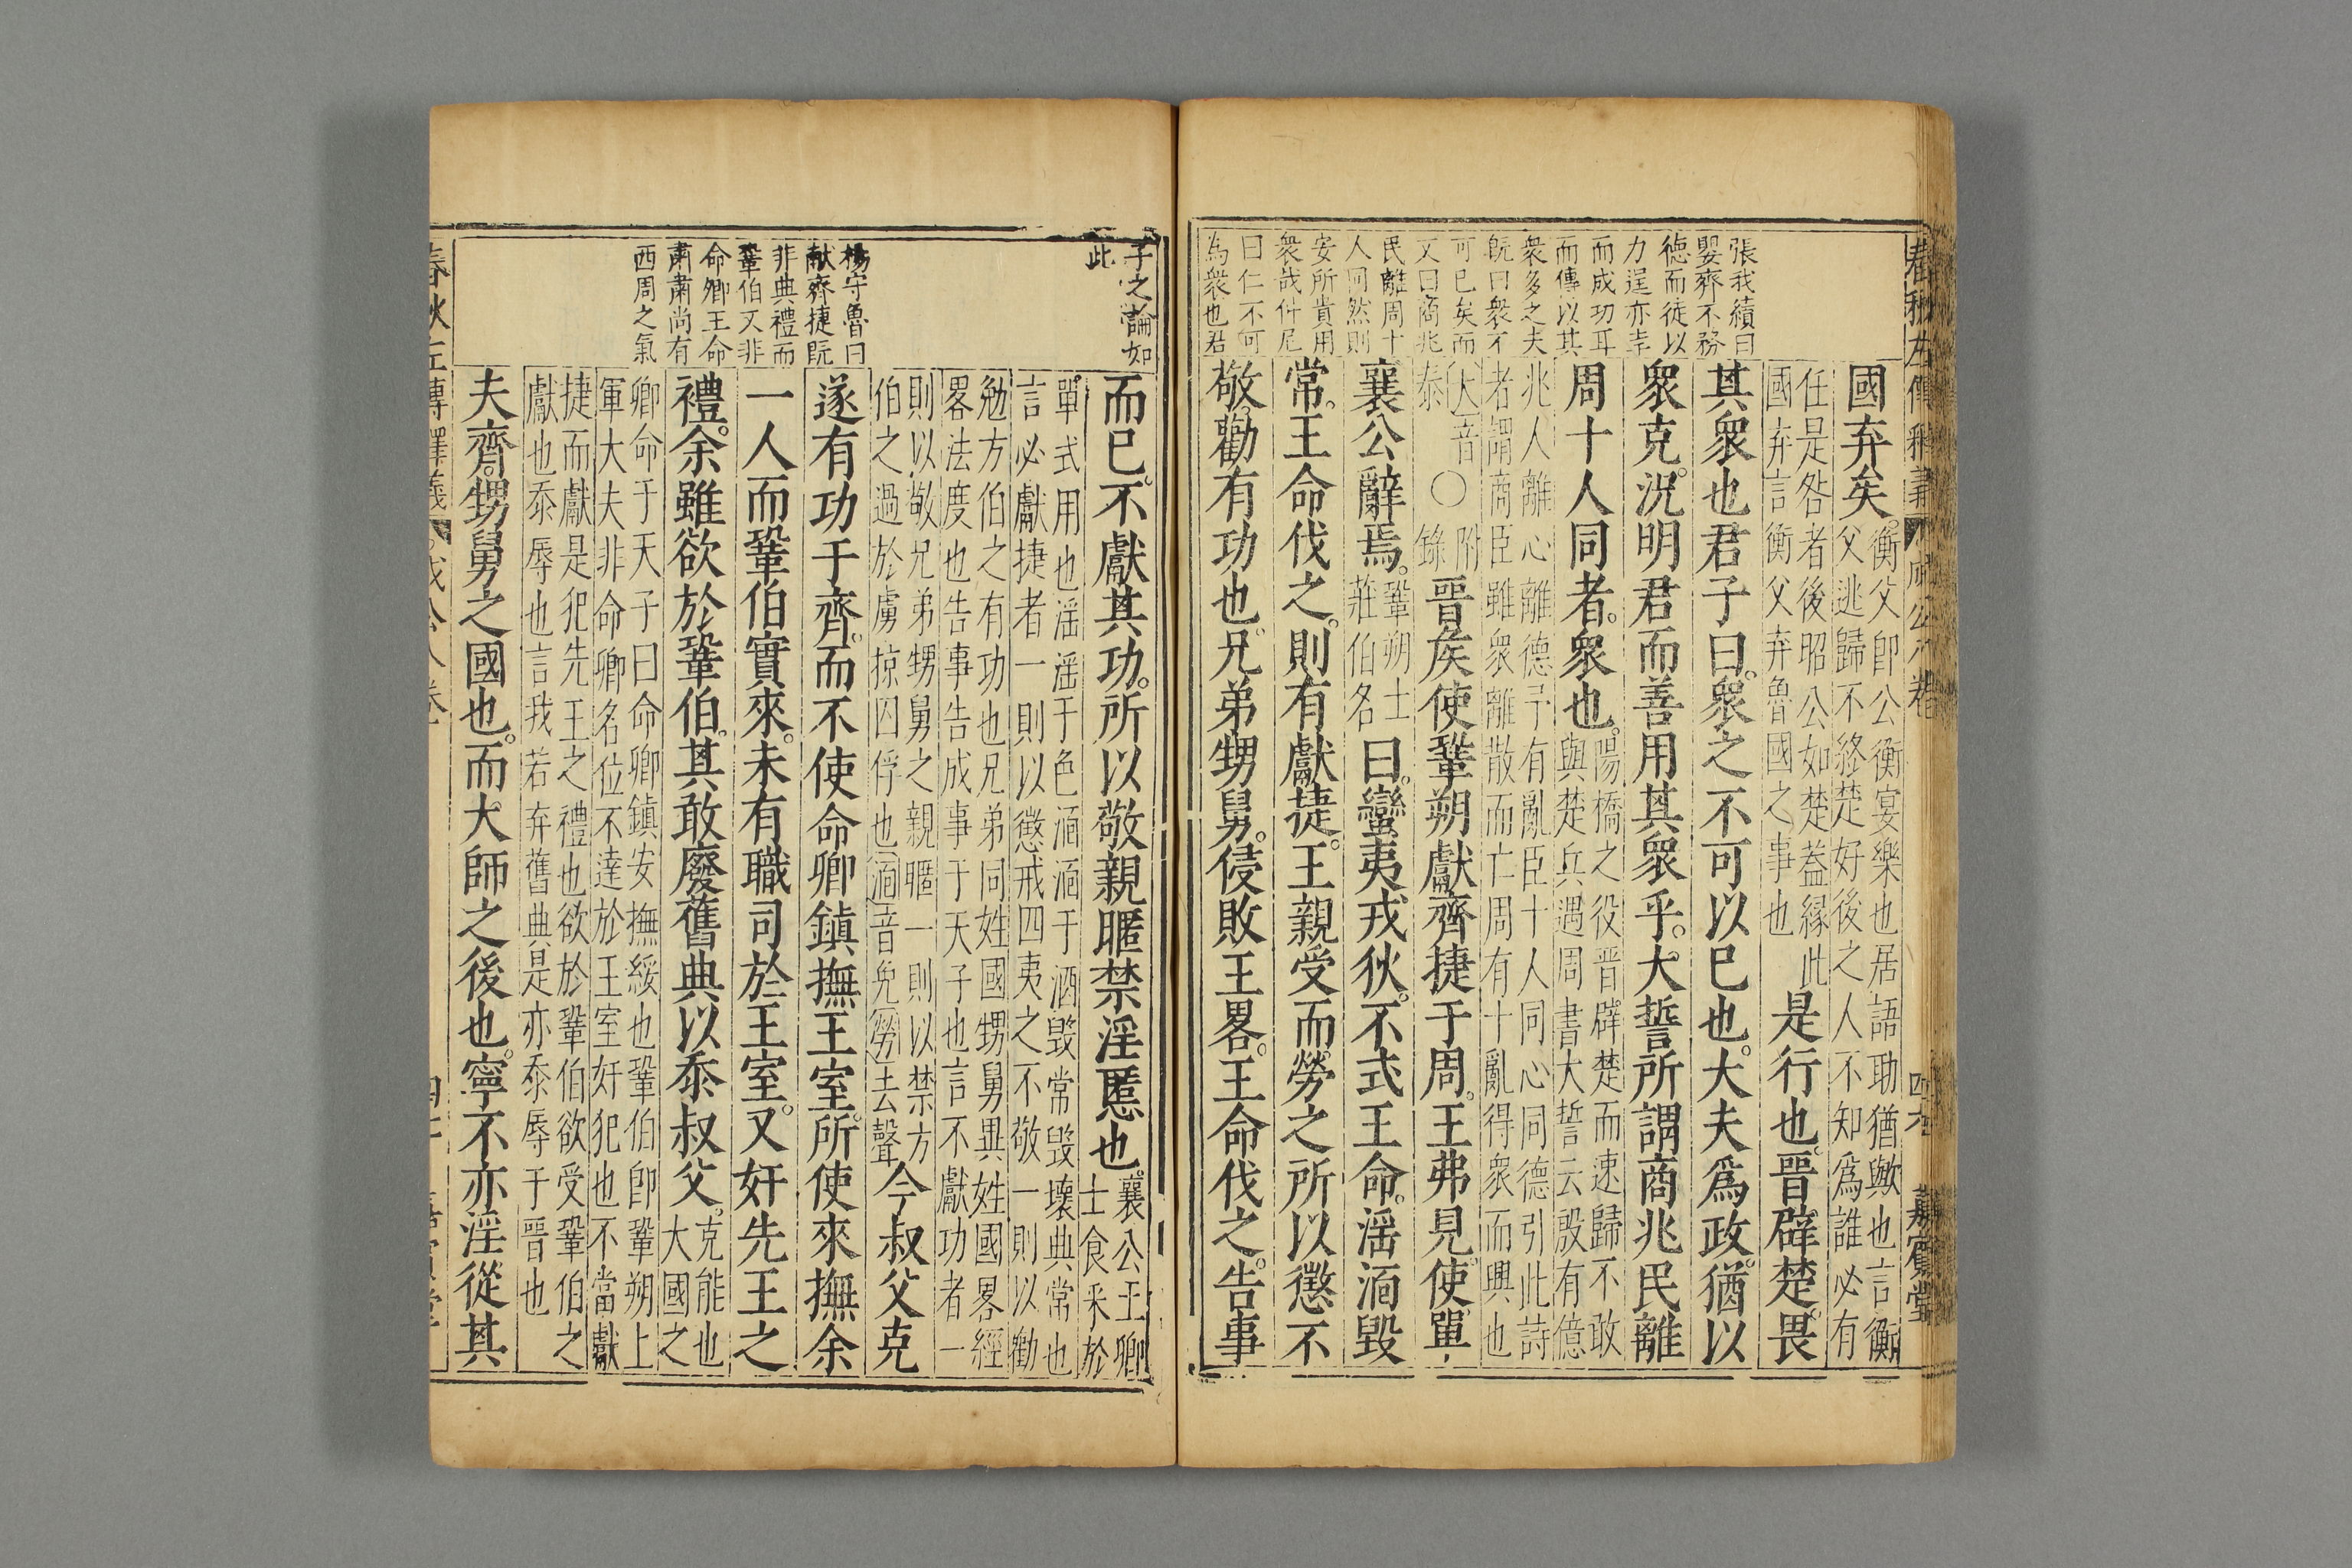 張我續曰
嬰齊不務
德而徒以
力逞亦幸
而成功耳
而傳以其
衆多之夫
旣曰衆不
可已矣而
又曰商兆
民離周十
人同然則
安所貴用
衆哉仲尼
曰仁不可
為衆也君
國弃矣衡父卽公衡宴樂也居語助猶歟也言衡
父逃歸不終楚好後之人不知爲誰必有
任是咎者後昭公如楚葢緣此
國弃言衡父弃魯國之事也
是行也晉辟楚畏
其衆也君子曰衆之不可以已也大夫爲政猶以
衆克況明君而善用其衆乎大誓所謂商兆民離
周十人同者衆也陽橋之役晉辟楚而速歸不敢
與楚兵遇周書大誓云殷有億
兆人離心離德予有亂臣十人同心同德引此詩
者謂商臣雖衆離散而亡周有十亂得衆而興也
大音
泰
○附
錄
晉侯使鞏朔獻齊捷于周王弗見使單
襄公辭焉鞏朔士
莊伯名
曰蠻夷戎狄不式王命淫湎毀
常王命伐之則有獻捷王親受而勞之所以懲不
敬勸有功也兄弟甥舅侵敗王畧王命伐之告事
春秋左傳釋義
成公八卷
四九
嘉賓堂
子之論如
此
楊守魯曰
獻齊捷旣
非典禮而
鞏伯又非
命卿王命
肅肅尚有
西周之氣
而已不獻其功所以敬親暱禁淫慝也襄公王卿
士食采於
單式用也淫淫于色湎湎于酒毀常毀壞典常也
言必獻捷者一則以懲戒四夷之不敬一則以勸
勉方伯之有功也兄弟同姓國甥舅異姓國畧經
畧法度也告事告成事于天子也言不獻功者一
則以敬兄弟甥舅之親暱一則以禁方
伯之過於虜掠囚俘也湎音免勞去聲
今叔父克
遂有功于齊而不使命卿鎮撫王室所使來撫余
一人而鞏伯實來未有職司於王室又奸先王之
禮余雖欲於鞏伯其敢廢舊典以忝叔父克能也
大國之
卿命于天子曰命卿鎮安撫綏也鞏伯卽鞏朔上
軍大夫非命卿名位不達於王室奸犯也不當獻
捷而獻是犯先王之禮也欲於鞏伯欲受鞏伯之
獻也忝辱也言我若弃舊典是亦忝辱于晉也
夫齊甥舅之國也而大師之後也寧不亦淫從其